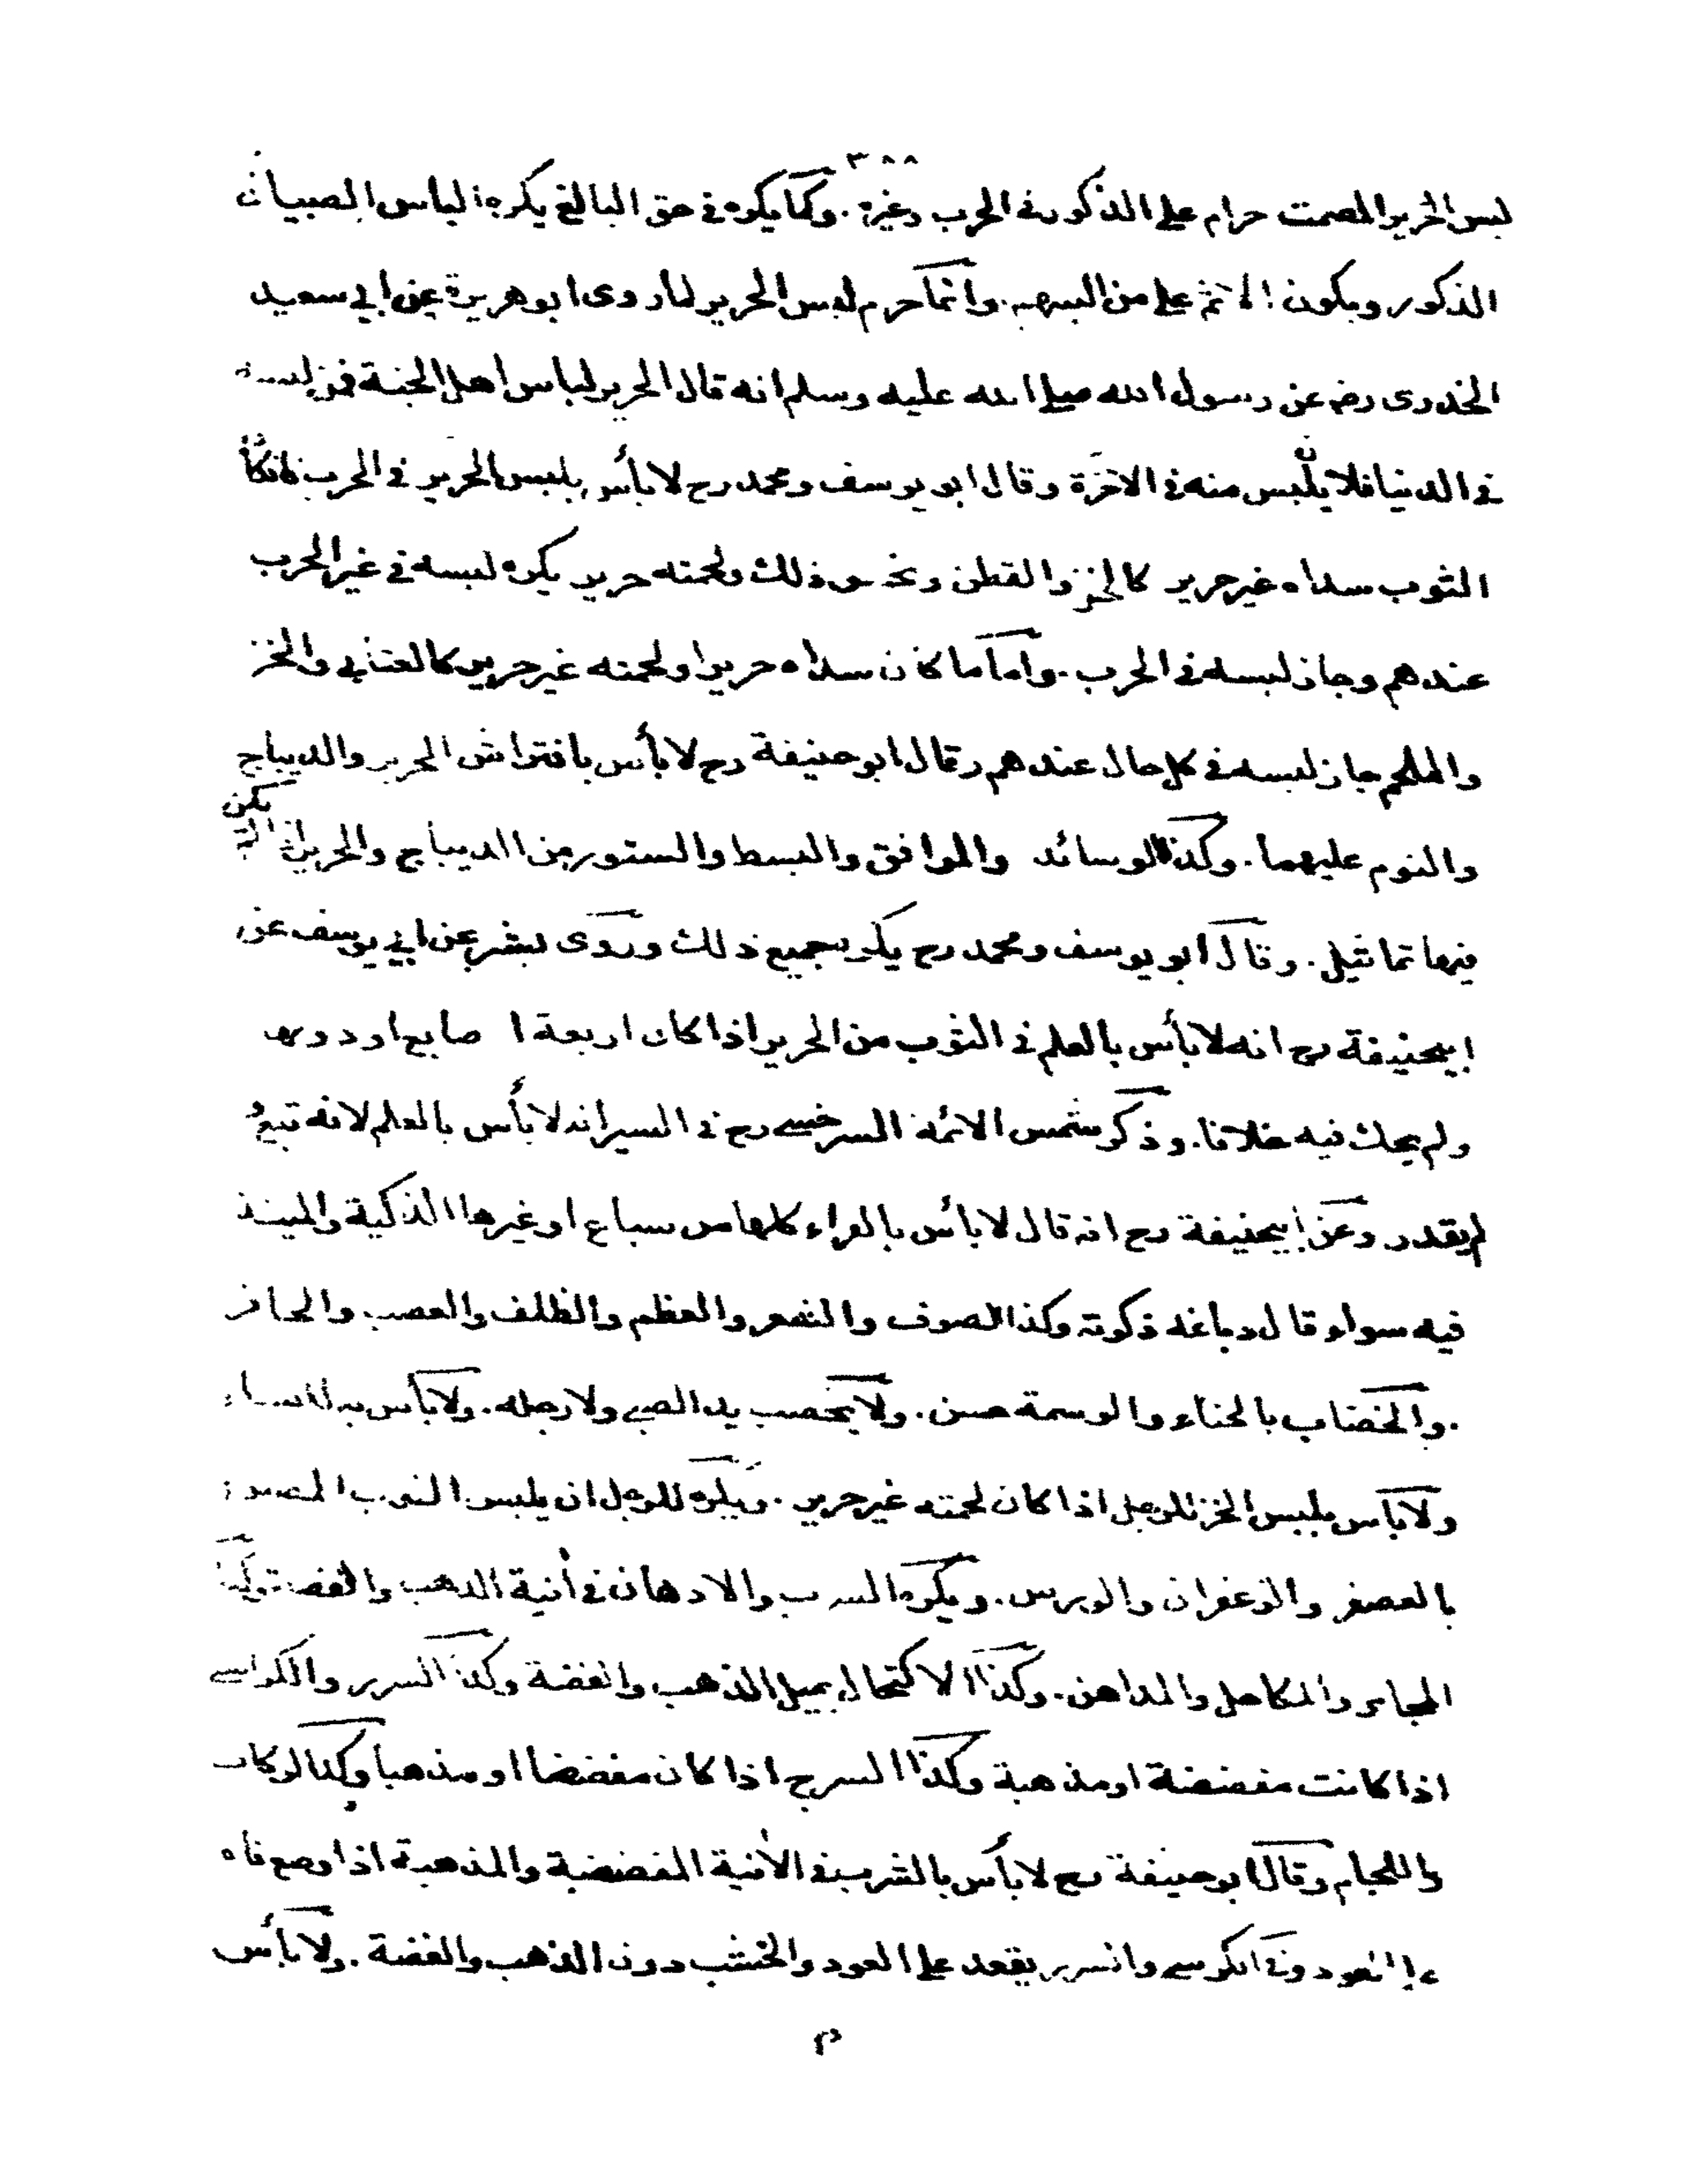 ٣٨٨
لبس الحرير المصمت حرام على الذكور فى الحرب وغيره . وكما يكره فى حق البالغ يكره الباس الصبيان
الذكور ويكون الاثم على من البسهم . وانما حرم لبس الحرير لما روى ابو هريرة عن ابى سعيد
الخدرى رضـ عن رسول الله صلى الله عليه وسلم انه قال الحرير لباس اهل الجنة فمن لبسه
فى الدنيا فلا يلبس منه فى الاخرة وقال ابو يوسف ومحمد رح لا بأس بلبس الحرير فى الحرب
الثوب سداه غير حرير كالخز والقطن ونحو ذلك ولحمته حرير يكره لبسه فى غير الحرب
عندهم وجاز لبسه فى الحرب . واما ما كان سداه حريرا ولحمته غير حرير كالعتابى والخز
والملحم جاز لبسه فى كل حال عندهم وقال ابو حنيفة رح لا بأس بافتراش الحرير والديباج
والنوم عليهما . وكذا الوسائد والموافق والبسط والستور من الديباج والحرير اذا لم يكن
فيها تماثيل . وقال ابو يوسف ومحمد رح يكره جميع ذلك وروى بشر عن ابى يوسف عن
ابيحنيفة رح انه لا بأس بالعلم فى الثوب من الحرير اذا كان اربعة ا صابع او دونها
ولم يحك فيه خلافا . وذكر شمس الائمة السرخسى رح فى السير انه لا بأس بالعلم لانه تبع
لم يقدر وعن ابيحنيفة رح انه قال لا بأس بالفراء كلها من سباع او غيرها الذكية والميتة
فيه سواء وقال دباغه ذكوته وكذا الصوف والشعر والعظم والظلف والعصب والحافر
. والخضاب بالحناء والوسمة حسن . ولا يخضب يد الصبى ولا رجله . ولا بأس به للنساء
ولا بأس بلبس الخز للرجل اذا كان لحمته غير حرير . ويكره للرجل ان يلبس الثوب المصبوغ
بالعصفر والزعفران والورس . ويكره الشرب والادهان فى أنية الذهب والفضة وكذا
المجامر والمكاحل والمداهن . وكذا الاكتحال بميل الذهب والفضة وكذا السرير والكراسى
اذا كانت مفضضة او مذهبة وكذا السرج اذا كان مفضضا او مذهبا وكذا الركاب
واللجام وقال ابو حنيفة رح لا بأس بالشرب فى الأنية المفضضة والمذهبة اذا وضع فاه
على العود وفى الكرسى والسرير يقعد على العود والخشب دون الذهب والفضة . ولا بأس